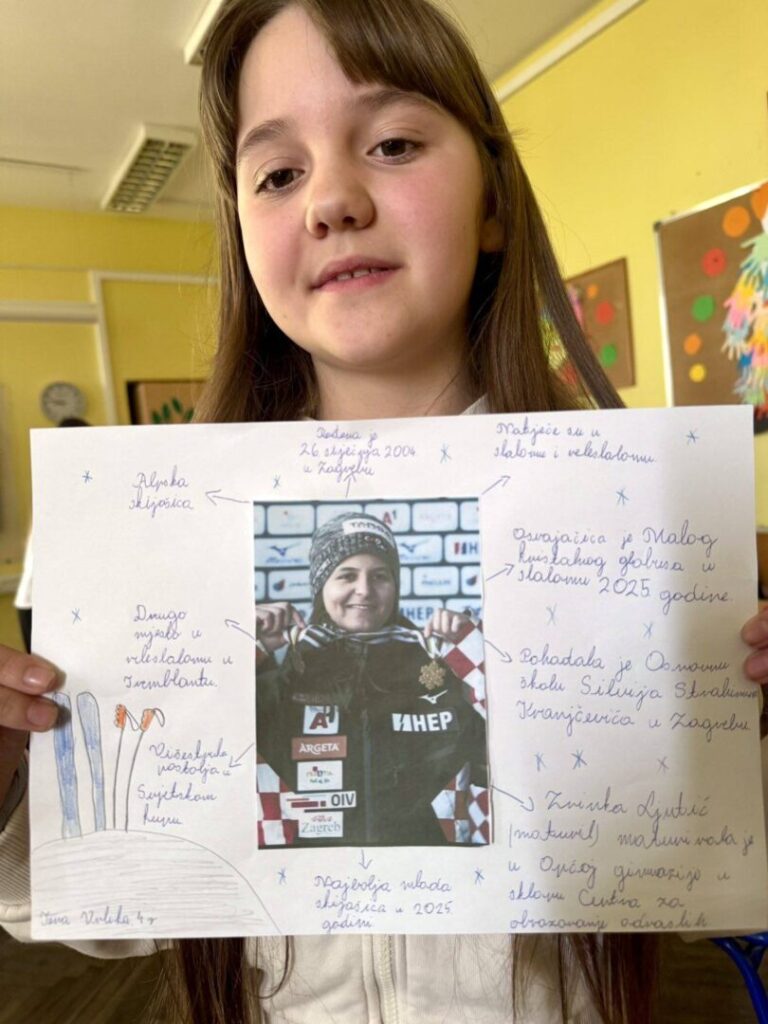 Rođena je
26. siječnja 2004.
u Zagrebu
Natječe se u
slalomu i veleslalomu.
Alpska
skijašica
Osvajačica je Malog
kristalnog globusa u
slalomu 2025. godine.
Drugo
mjesto u
veleslalomu u
Tremblantu.
Pohađala je Osnovnu
školu Silvija Strahimira
Kranjčevića u Zagrebu.
Višestruka
postolja u
Svjetskom
kupu
Zrinka Ljutić
maturirala je
u Općoj gimnaziji u
sklopu Centra za
obrazovanje odraslih
Najbolja mlada
skijašica u 2025.
godini.
4. r
A1
HEP
HEP
A1
HEP
ARGETA
OIV
Zagreb